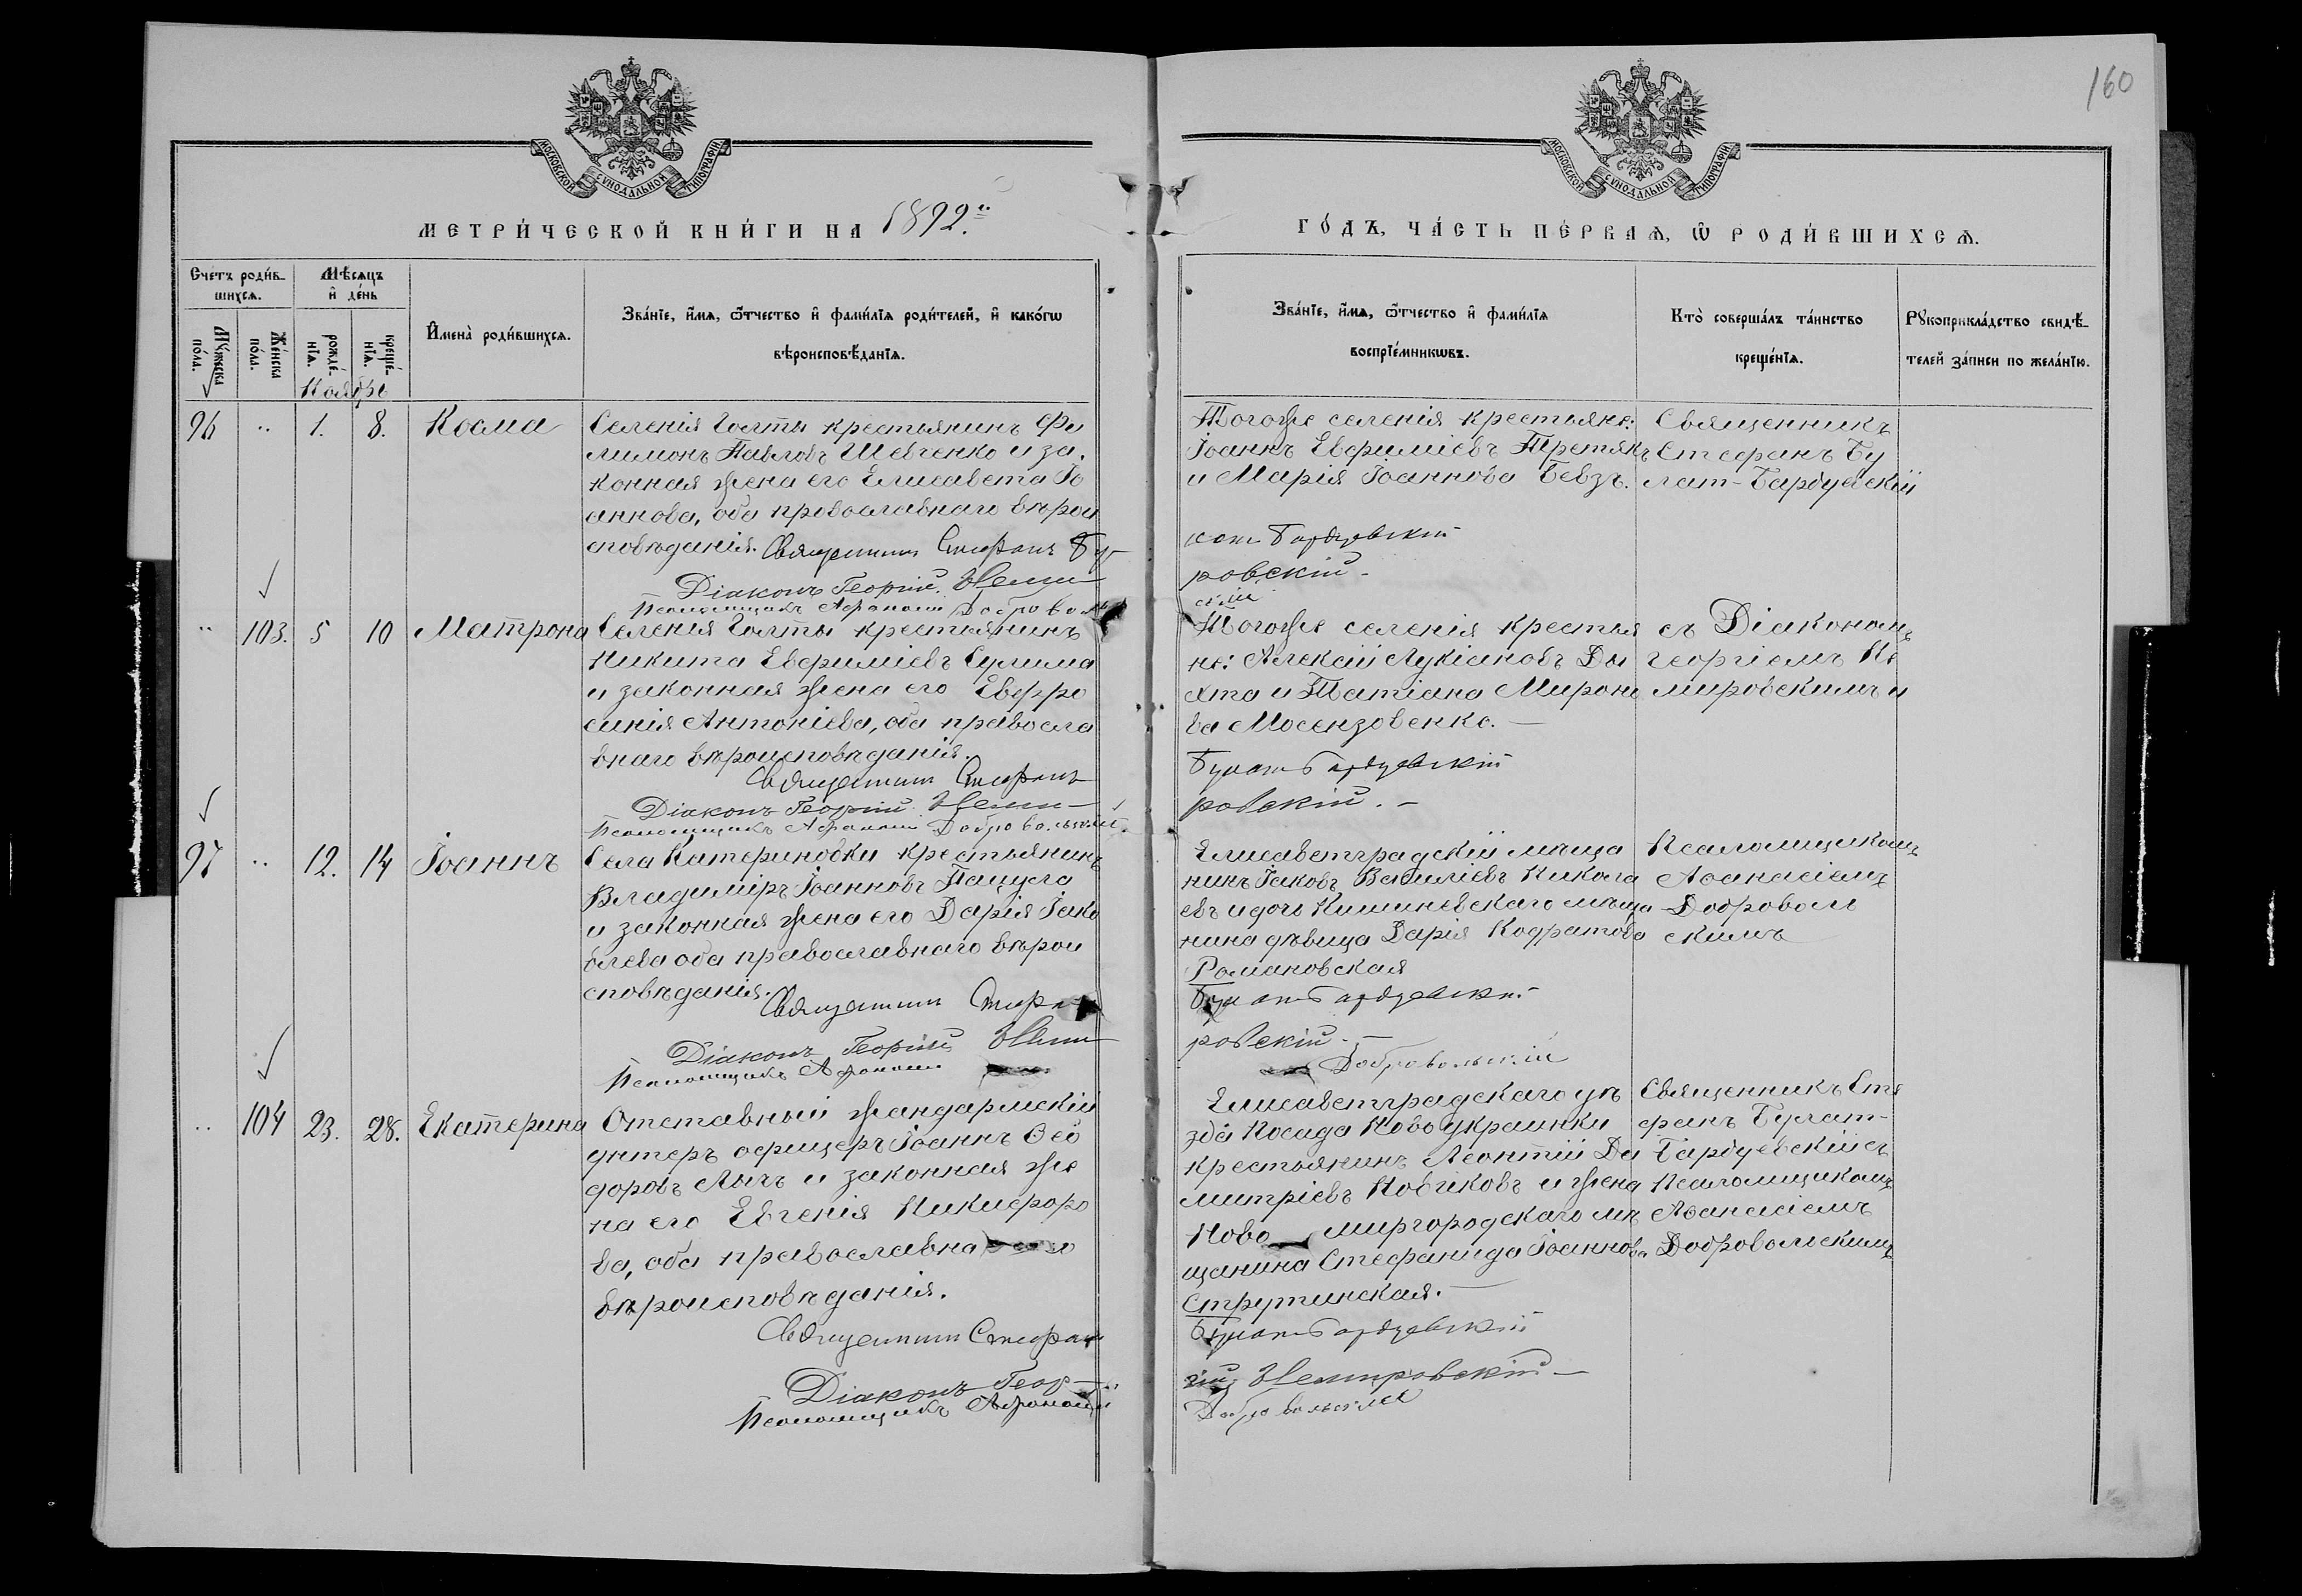 160
МОСКОВСКОЙ СУНОДАЛЬНОЙ ТИПОГРАФІИ
МОСКОВСКОЙ СУНОДАЛЬНОЙ ТИПОГРАФІИ
МЕТРИ́ЧЕСКОЙ КНИ́ГИ НА 1892й
ГО́ДЪ, ЧА́СТЬ ПЕ́РВАѦ, Ѽ РОДИ́ВШИХСѦ.
Счетъ роди́в-
шихсѧ.
Мѣсѧцъ
и҆ де́нь
Мꙋ́жеска
по́ла.
Же́нска
по́ла.
рожде́-
нїѧ.
креще́-
нїѧ.
И҆мена̀ роди́вшихсѧ.
Зва́нїе, и҆́мѧ, ѻ҆́тчество и҆ фами́лїѧ роди́телей, и҆ како́гѡ
вѣроисповѣ́данїѧ.
Зва́нїе, и҆́мѧ, ѻ҆́тчество и҆ фами́лїѧ
воспрїе́мникѡвъ.
Кто̀ соверша́лъ та́инство
креще́нїѧ.
Рꙋкоприкла́дство свидѣ́-
телей за́писи по жела́нїю.
Ноябрь
96 " 1. 8. Косма
Селенія Голты крестьянинъ Фи
лимонъ Павловъ Шевченко и за-
конная жена его Елисавета Іо
аннова, оба православнаго вѣрои
сповѣданія. Священникъ Стефанъ Бу-
Діаконъ Георгій Неми-
Псаломщикъ Афанасій Доброволь
Тогоже селенія крестьяне:
Іоаннъ Евфиміевъ Третякъ
и Марія Іоаннова Бевзъ.
латъ Бардуевскій
ровскій.
скій
Священникъ
Стефанъ Бу
лат-Бардуевскій
" 103. 5 10 Матрона
Селенія Голты крестьянинъ
Никита Евфиміевъ Сулима
и законная жена его Евфро
синія Антоніева, оба правосла
внаго вѣроисповѣданія.
Священникъ Стефанъ
Діаконъ Георгій Неми-
Псаломщикъ Афанасій Добровольскій.
Тогоже селенія крестья
не: Алексій Лукіановъ Ды
хта и Татіана Мироно
ва Мосензовенко.
Булатъ Бардуевскій
ровскій.
съ Діакономъ
Георгіемъ Не
мировскимъ и
97 " 12. 14 Іоаннъ
Села Катериновки крестьянинъ
Владиміръ Іоанновъ Пацула
и законная жена его Дарія Іако
влева оба православнаго вѣрои
сповѣданія.
Священникъ Стефанъ
Діаконъ Георгій Неми
Псаломщикъ Афанасій
Елисаветградскій мѣща
нинъ Іаковъ Василіевъ Никола
евъ и дочь Кишиневскаго мѣща
нина дѣвица Дарія Кодратова
Романовская
Булатъ Бардуевскій
ровскій.
Добровольскій
Псаломщикомъ
Аѳанасіемъ
Доброволь
скимъ
" 104 23. 28. Екатерина
Отставный жандармскій
унтеръ офицеръ Іоаннъ Ѳео
доровъ Лычъ и законная же
на его Евгенія Никифоро
ва, оба православна
вѣроисповѣданія.
Священникъ Стефанъ
Діаконъ Геор-
Псаломщикъ Афанасій
Елисаветградскаго уѣ
зда Посада Новоукраинки
крестьянинъ Леонтій Ди
митріевъ Новиковъ и жена
Ново миргородскаго мѣ
щанина Стефанида Іоаннова
Струтинская.
Булатъ Бардуевскій
гій Немировскій
Добровольскій
Священникъ Сте
фанъ Булат-
Бардуевскій съ
Псаломщикомъ
Аѳанасіемъ
Добровольскимъ